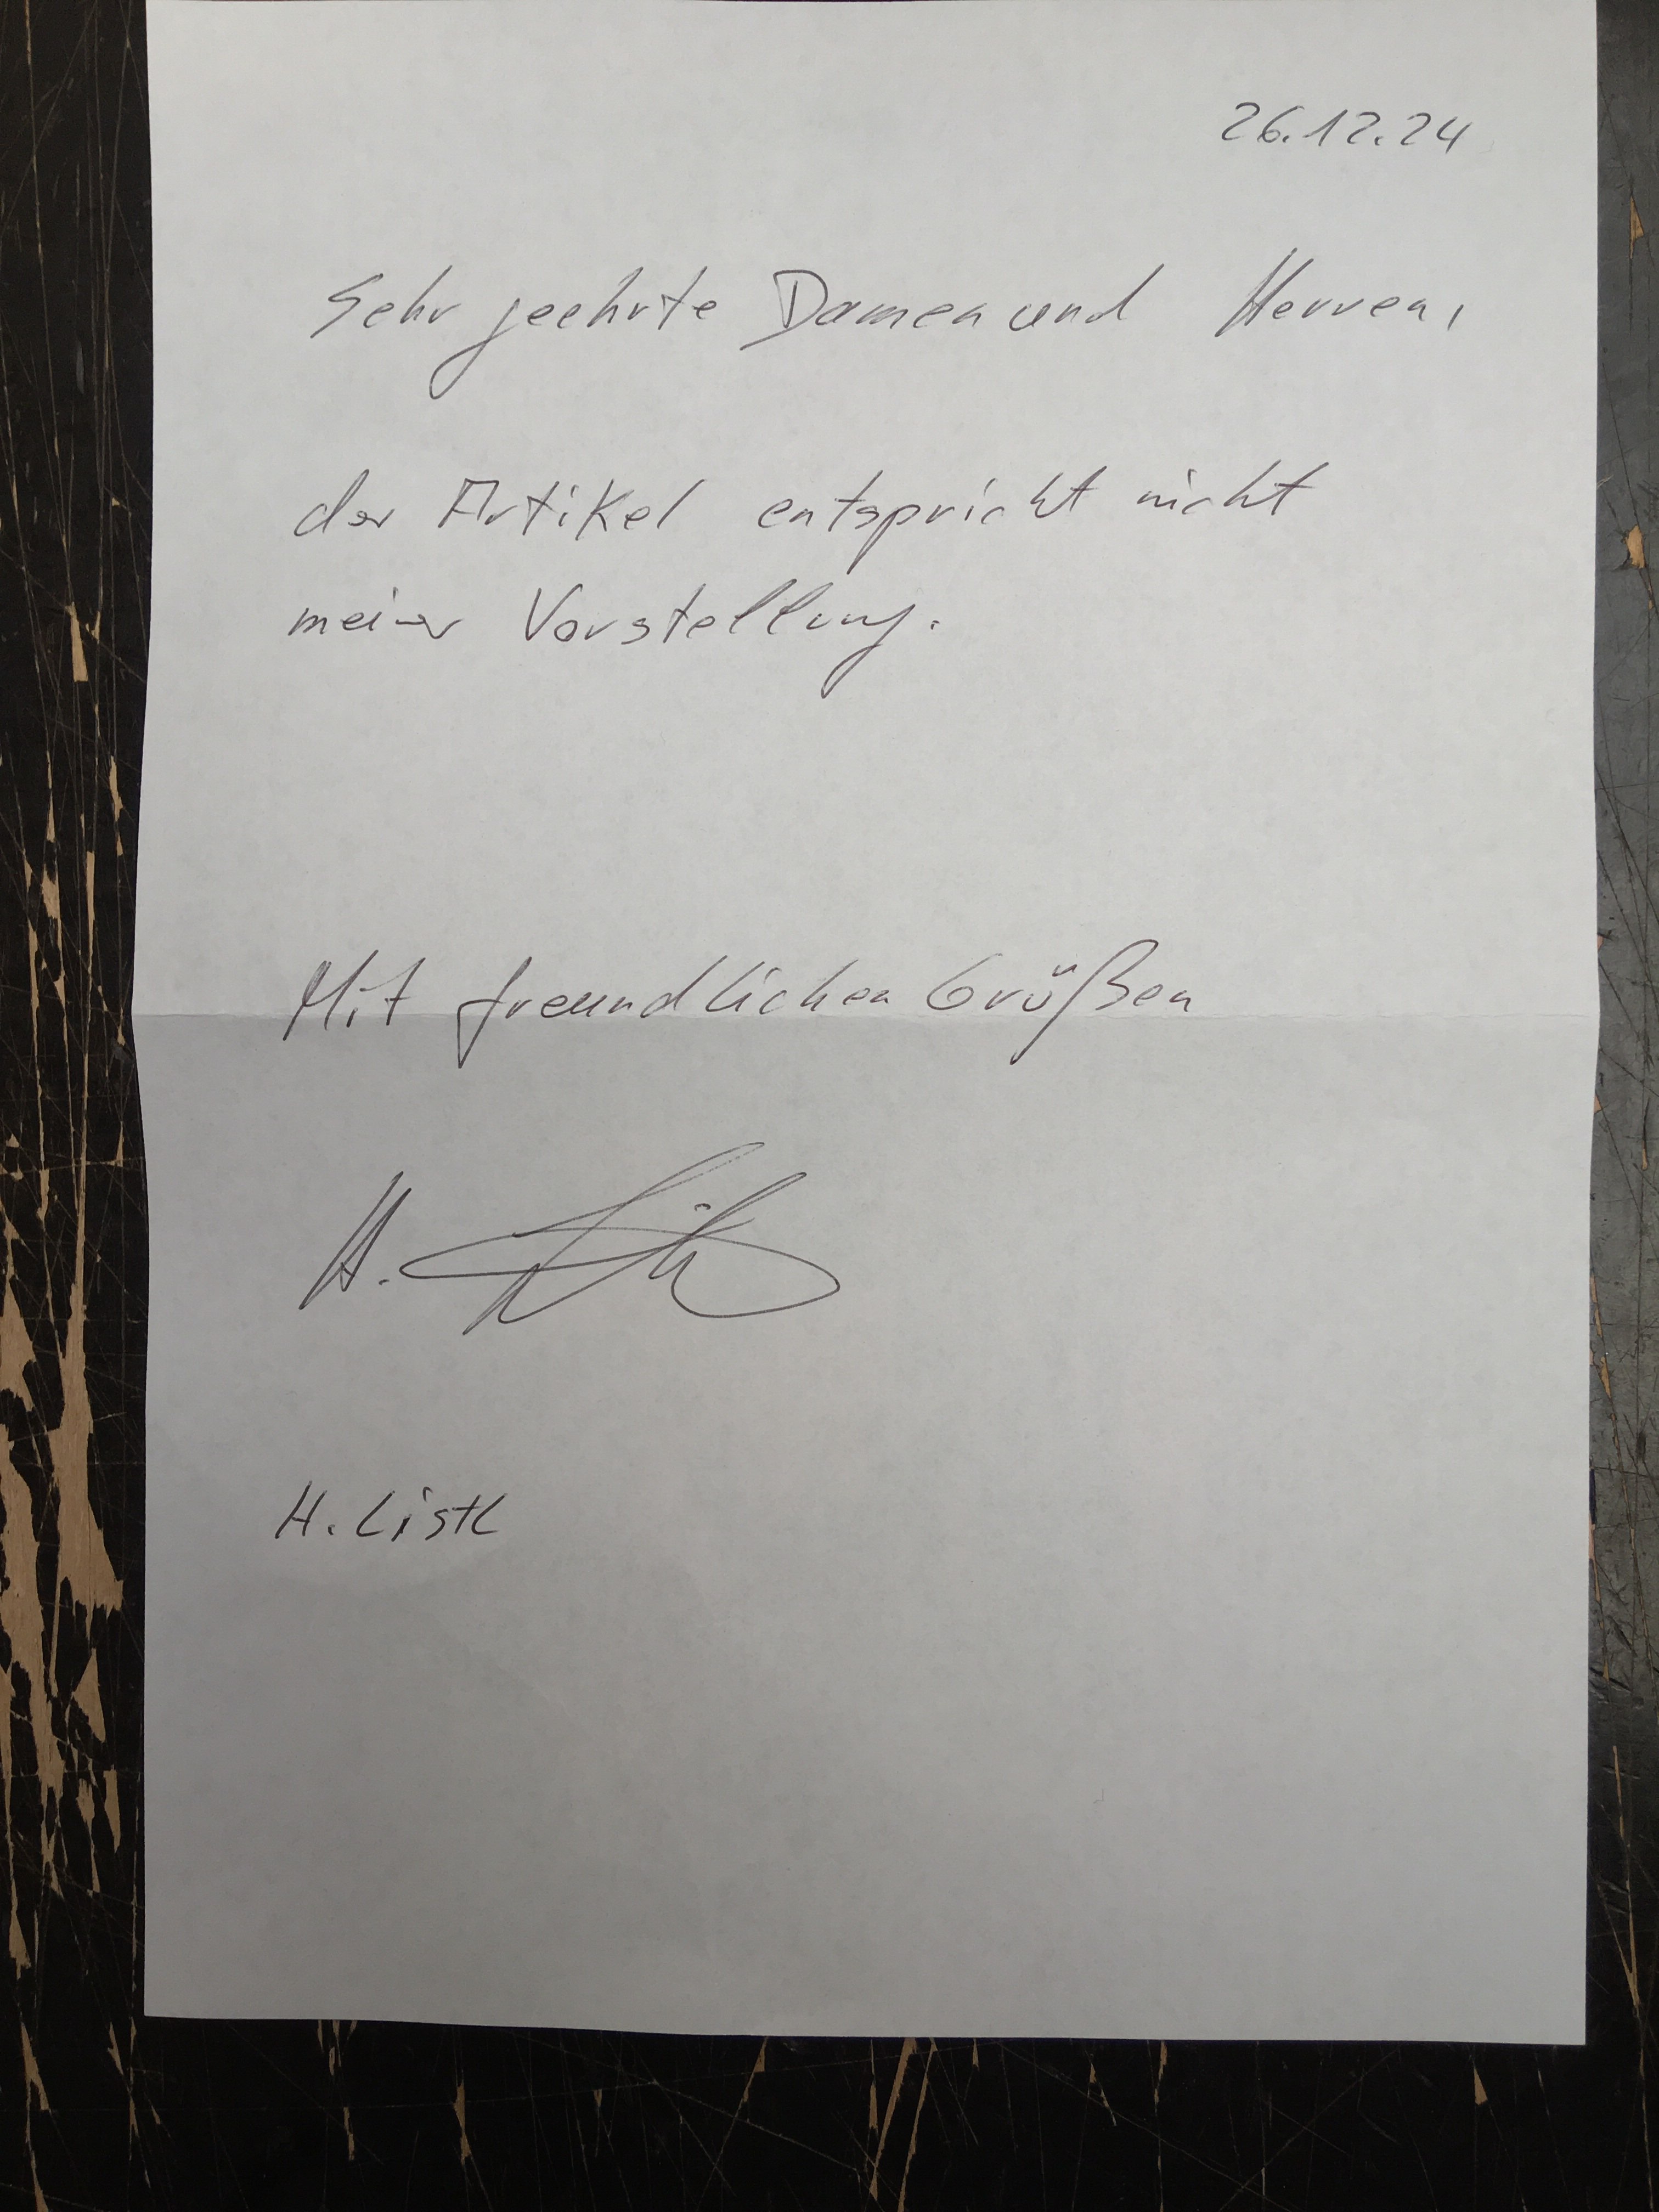 26.12.24
Sehr geehrte Damen und Herren,
der Artikel entspricht nicht
meiner Vorstellung.
Mit freundlichen Grüßen
H.
H. Listl